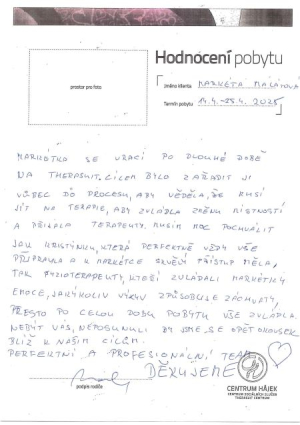 Hodnocení pobytu
prostor pro foto
Jméno klienta MARKÉTA MALÁTOVÁ
Termín pobytu 14.4.-25.4. 2025
MARKÉTKA SE VRACÍ PO DLOUHÉ DOBĚ
NA THERASUIT. CÍLEM BYLO ZAŘADIT JI
VŮBEC DO PROCESU, ABY VĚDĚLA, ŽE MUSÍ
JÍT NA TERAPIE, ABY ZVLÁDLA ZMĚNU MÍSTNOSTI
A PŘIJALA TERAPEUTY. MUSÍM MOC POCHVÁLIT
JAK KRISTÝNKU, KTERÁ PERFEKTNĚ VŽDY VŠE
PŘIPRAVILA A K MARKÉTCE SKVĚLÝ PŘÍSTUP MĚLA,
TAK FYZIOTERAPEUTY, KTEŘÍ ZVLÁDALI MARKÉTKY
EMOCE, JAKÝKOLIV VÝKYV ZPŮSOBUJE ZÁCHVATY,
PŘESTO PO CELOU DOBU POBYTU VŠE ZVLÁDLA.
NEBÝT VÁS, NEPOSUNULI BY JSME SE OPĚT O KOUSEK
BLÍŽ K NAŠIM CÍLŮM.
PERFEKTNÍ A PROFESIONÁLNÍ TEAM
DĚKUJEME
podpis rodiče
CENTRUM HÁJEK
CENTRUM SOCIÁLNÍCH SLUŽEB
THERASUIT CENTRUM